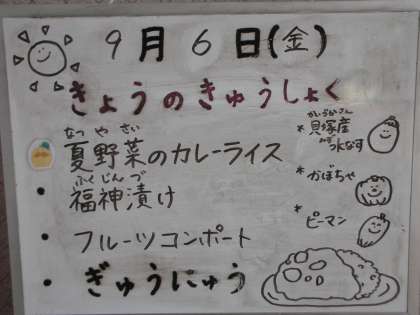 9月6日(金)
きょうのきゅうしょく
なつやさい
夏野菜のカレーライス
ふくじんづ
・福神漬け
・フルーツコンポート
・ぎゅうにゅう
かいづかさん
*貝塚産
みず
水なす
*かぼちゃ
*ピーマン